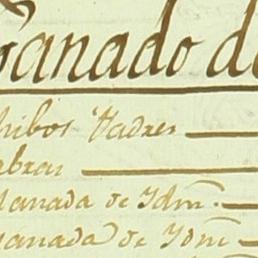 Ganado de
hibos Padres
abras
Manada de Ydm.
Manada de Ydm